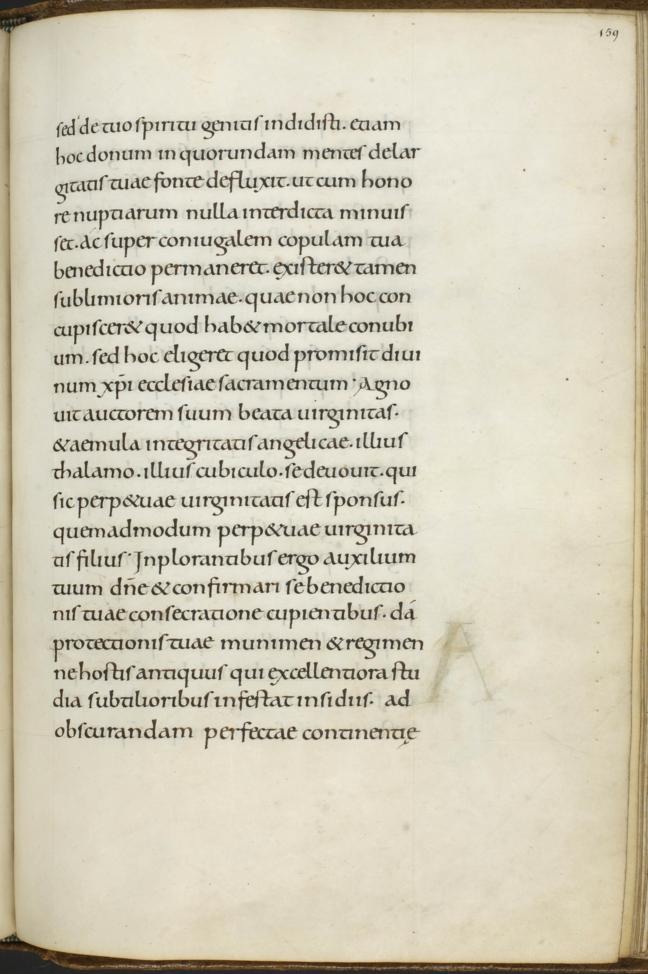 159
sed de tuo spiritu genitis indidisti. etiam
hoc donum in quorundam mentes delar
gitatis tuae fonte defluxit. ut cum hono
re nuptiarum nulla interdicta minuis
set. ac super coniugalem copulam tua
benedictio permaneret. exister& tamen
sublimioris animae. quae non hoc con
cupiscer& quod hab& mortale conubi
um. sed hoc eligeret quod promisit divi
num xp̄i ecclesiae sacramentum. Agno
uit auctorem suum beata uirginitas.
& aemula integritatis angelicae. illius
thalamo. illius cubiculo. se deuouit. qui
sic perp&uae uirginitatis est sponsus.
quemadmodum perp&uae uirginita
tis filius. Inplorantibus ergo auxilium
tuum dñe & confirmari se benedictio
nis tuae consecratione cupientibus. dá
protectionis tuae munimen & regimen
ne hostis antiquus qui excellentiora stu
dia subtilioribus infestat insidiis. ad
obscurandam perfectae continentię
A